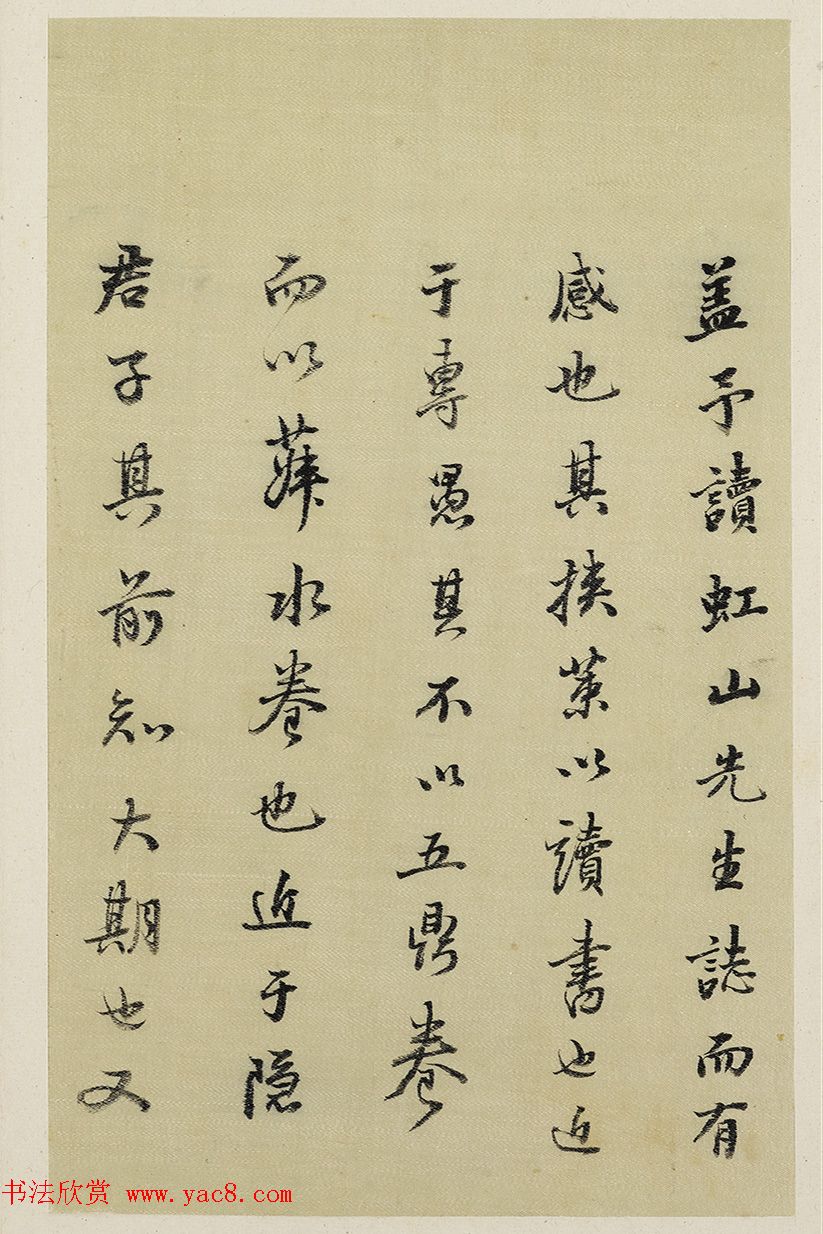 盖予讀虹山先生誌而有
感也其挟策以讀書也近
于專愚其不以五鼎養
而以菽水養也近于隐
君子其前知大期也又
书法欣赏 www.yac8.com